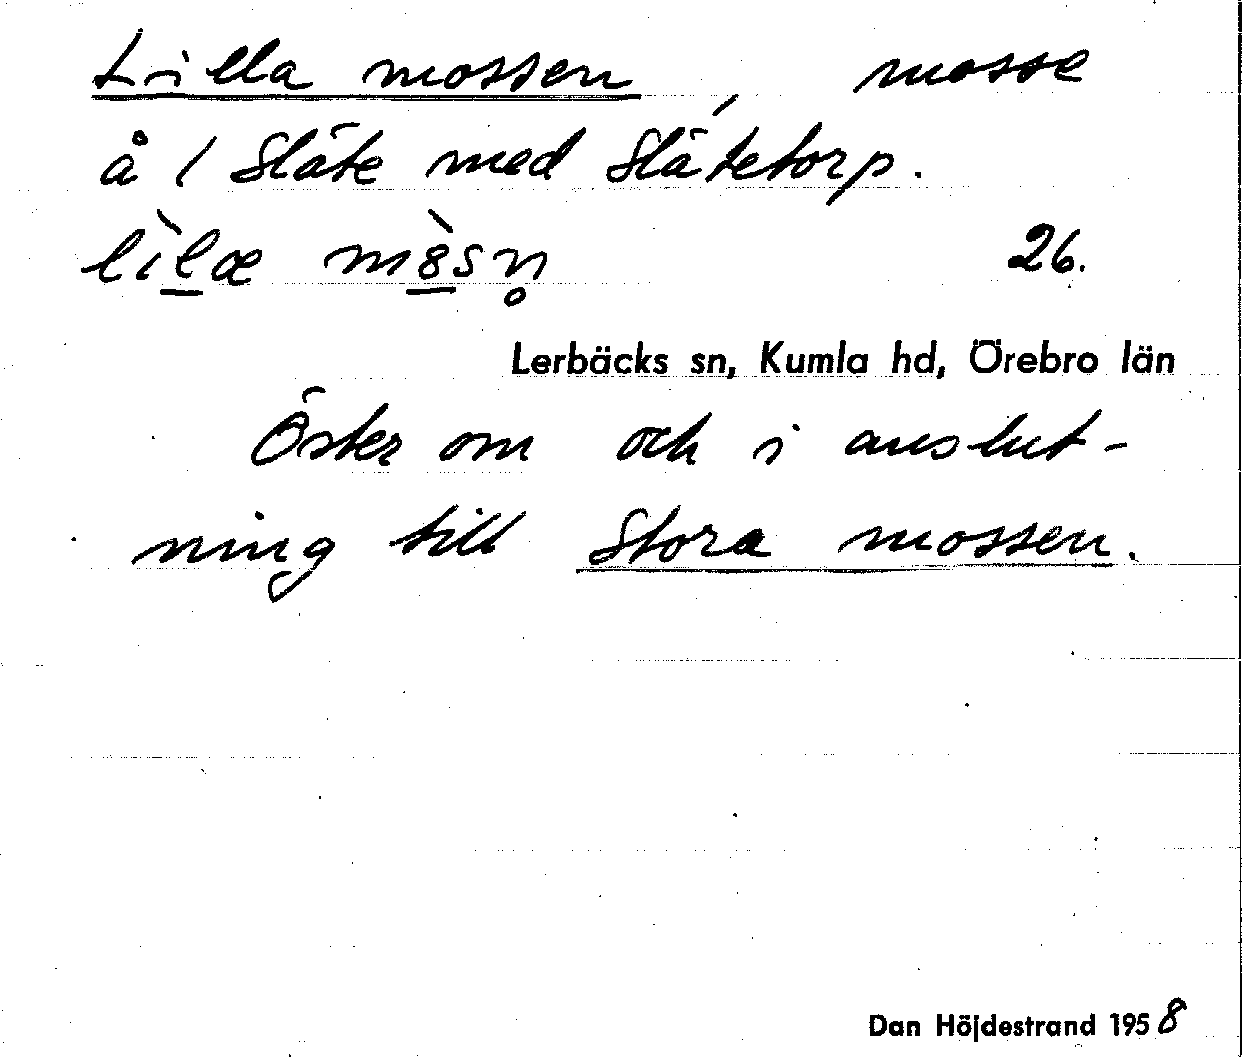 Lilla mossen, mosse
å 1 Släte med Slätetorp.
lìlæ mò̲sn̥ 26.
Lerbäcks sn, Kumla hd, Örebro län
Öster om och i anslut-
ning till Stora mossen.
Dan Höjdestrand 1958